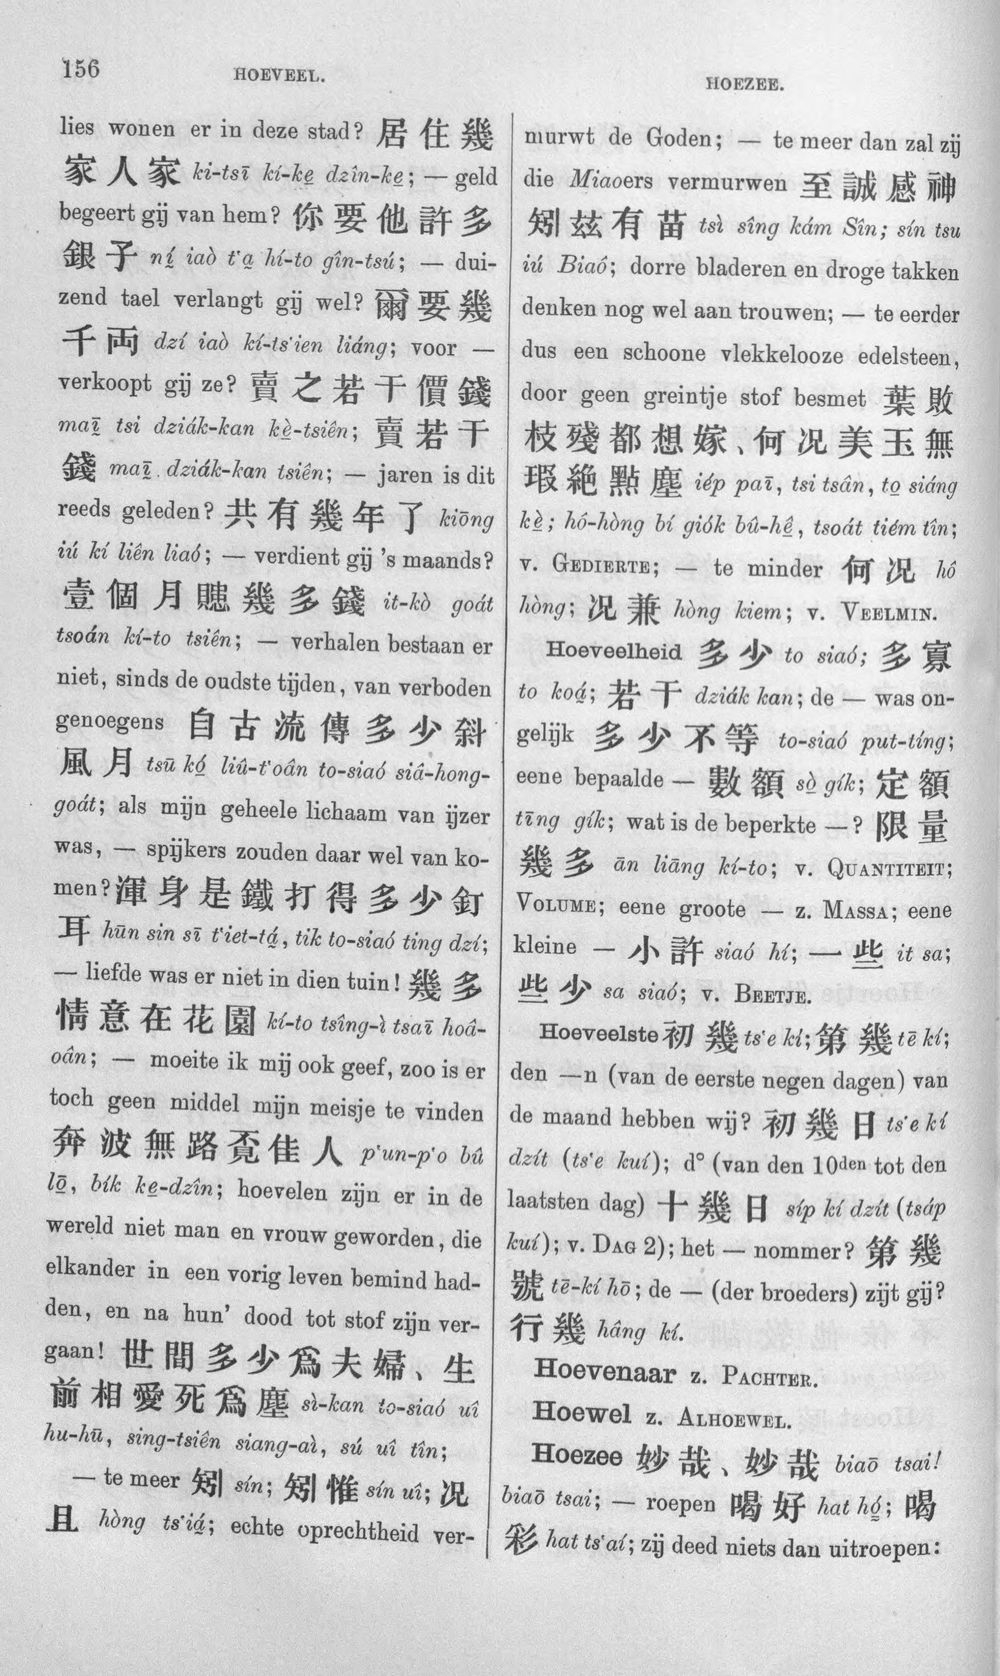 156
HOEVEEL.
HOEZEE.
lies wonen er in deze stad? 居住幾
家人家 ki-tsī kí-ke̠ dzîn-ke̠; — geld
begeert gij van hem? 你要他許多
銀子 ní̠ iaò t‘a̠ hí-to gîn-tsú; — dui-
zend tael verlangt gij wel? 爾要幾
千両 dzí iaò kí-ts‘ien liáng; voor —
verkoopt gij ze? 賣之若干價錢
maī̠ tsi dziák-kan kè̠-tsiên; 賣若干
錢 maī̠ dziák-kan tsiên; — jaren is dit
reeds geleden? 共有幾年了 kiōng
iú kí liên liaó; — verdient gij 's maands?
壹個月賺幾多錢 it-kò goát
tsoán kí-to tsiên; — verhalen bestaan er
niet, sinds de oudste tijden, van verboden
genoegens 自古流傳多少斜
風月 tsū kó̠ liû-t‘oân to-siaó siâ-hong-
goát; als mijn geheele lichaam van ijzer
was, — spijkers zouden daar wel van ko-
men? 渾身是鐵打得多少釘
耳 hūn sin sī t‘iet-tá̠, tik to-siaó ting dzí;
— liefde was er niet in dien tuin! 幾多
情意在花園 kí-to tsîng-ì tsaī hoâ-
oân; — moeite ik mij ook geef, zoo is er
toch geen middel mijn meisje te vinden
奔波無路覔佳人 p‘un-p‘o bû
lō̠, bík ke̠-dzîn; hoevelen zijn er in de
wereld niet man en vrouw geworden, die
elkander in een vorig leven bemind had-
den, en na hun' dood tot stof zijn ver-
gaan! 世間多少爲夫婦、生
前相愛死爲塵 sì-kan to-siaó uî
hu-hū, sing-tsiên siang-aì, sú uî tîn;
— te meer 矧 sín; 矧惟 sín uî; 况
且 hòng ts‘iá̠; echte oprechtheid ver-
murwt de Goden; — te meer dan zal zij
die Miaoers vermurwen 至誠感神
矧玆有苗 tsì sîng kám Sîn; sín tsu
iú Biaó; dorre bladeren en droge takken
denken nog wel aan trouwen; — te eerder
dus een schoone vlekkelooze edelsteen,
door geen greintje stof besmet 葉敗
枝殘都想嫁、何况美玉無
瑕絕點塵 iép paī, tsi tsân, to̠ siáng
kè̠; hô-hòng bí giók bû-hê̠, tsoát tiém tîn;
v. GEDIERTE; — te minder 何况 hô
hòng; 况兼 hòng kiem; v. VEELMIN.
Hoeveelheid 多少 to siaó; 多寡
to koá̠; 若干 dziák kan; de — was on-
gelijk 多少不等 to-siaó put-tíng;
eene bepaalde — 數額 sò̠ gík; 定額
tīng gík; wat is de beperkte —? 限量
幾多 ān liāng kí-to; v. QUANTITEIT;
VOLUME; eene groote — z. MASSA; eene
kleine — 小許 siaó hí; 一些 it sa;
些少 sa siaó; v. BEETJE.
Hoeveelste 初幾 ts‘e kí; 第幾 tē kí;
den —n (van de eerste negen dagen) van
de maand hebben wij? 初幾日 ts‘e kí
dzít (ts‘e kuí); d° (van den 10den tot den
laatsten dag) 十幾日 síp kí dzít (tsáp
kuí); v. DAG 2); het — nommer? 第幾
號 tē-kí hō; de — (der broeders) zijt gij?
行幾 hâng kí.
Hoevenaar z. PACHTER.
Hoewel z. ALHOEWEL.
Hoezee 妙哉、妙哉 biaō tsai!
biaō tsai; — roepen 喝好 hat hó̠; 喝
彩 hat ts‘aí; zij deed niets dan uitroepen: